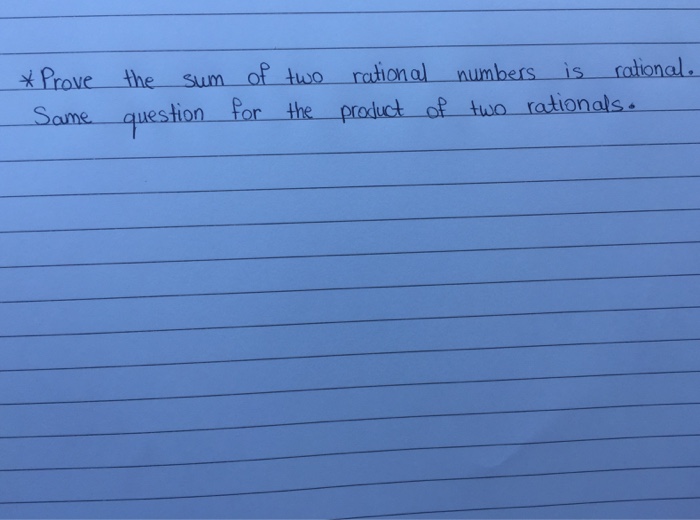 * Prove the sum of two rational numbers is rational.
Same question for the product of two rationals.